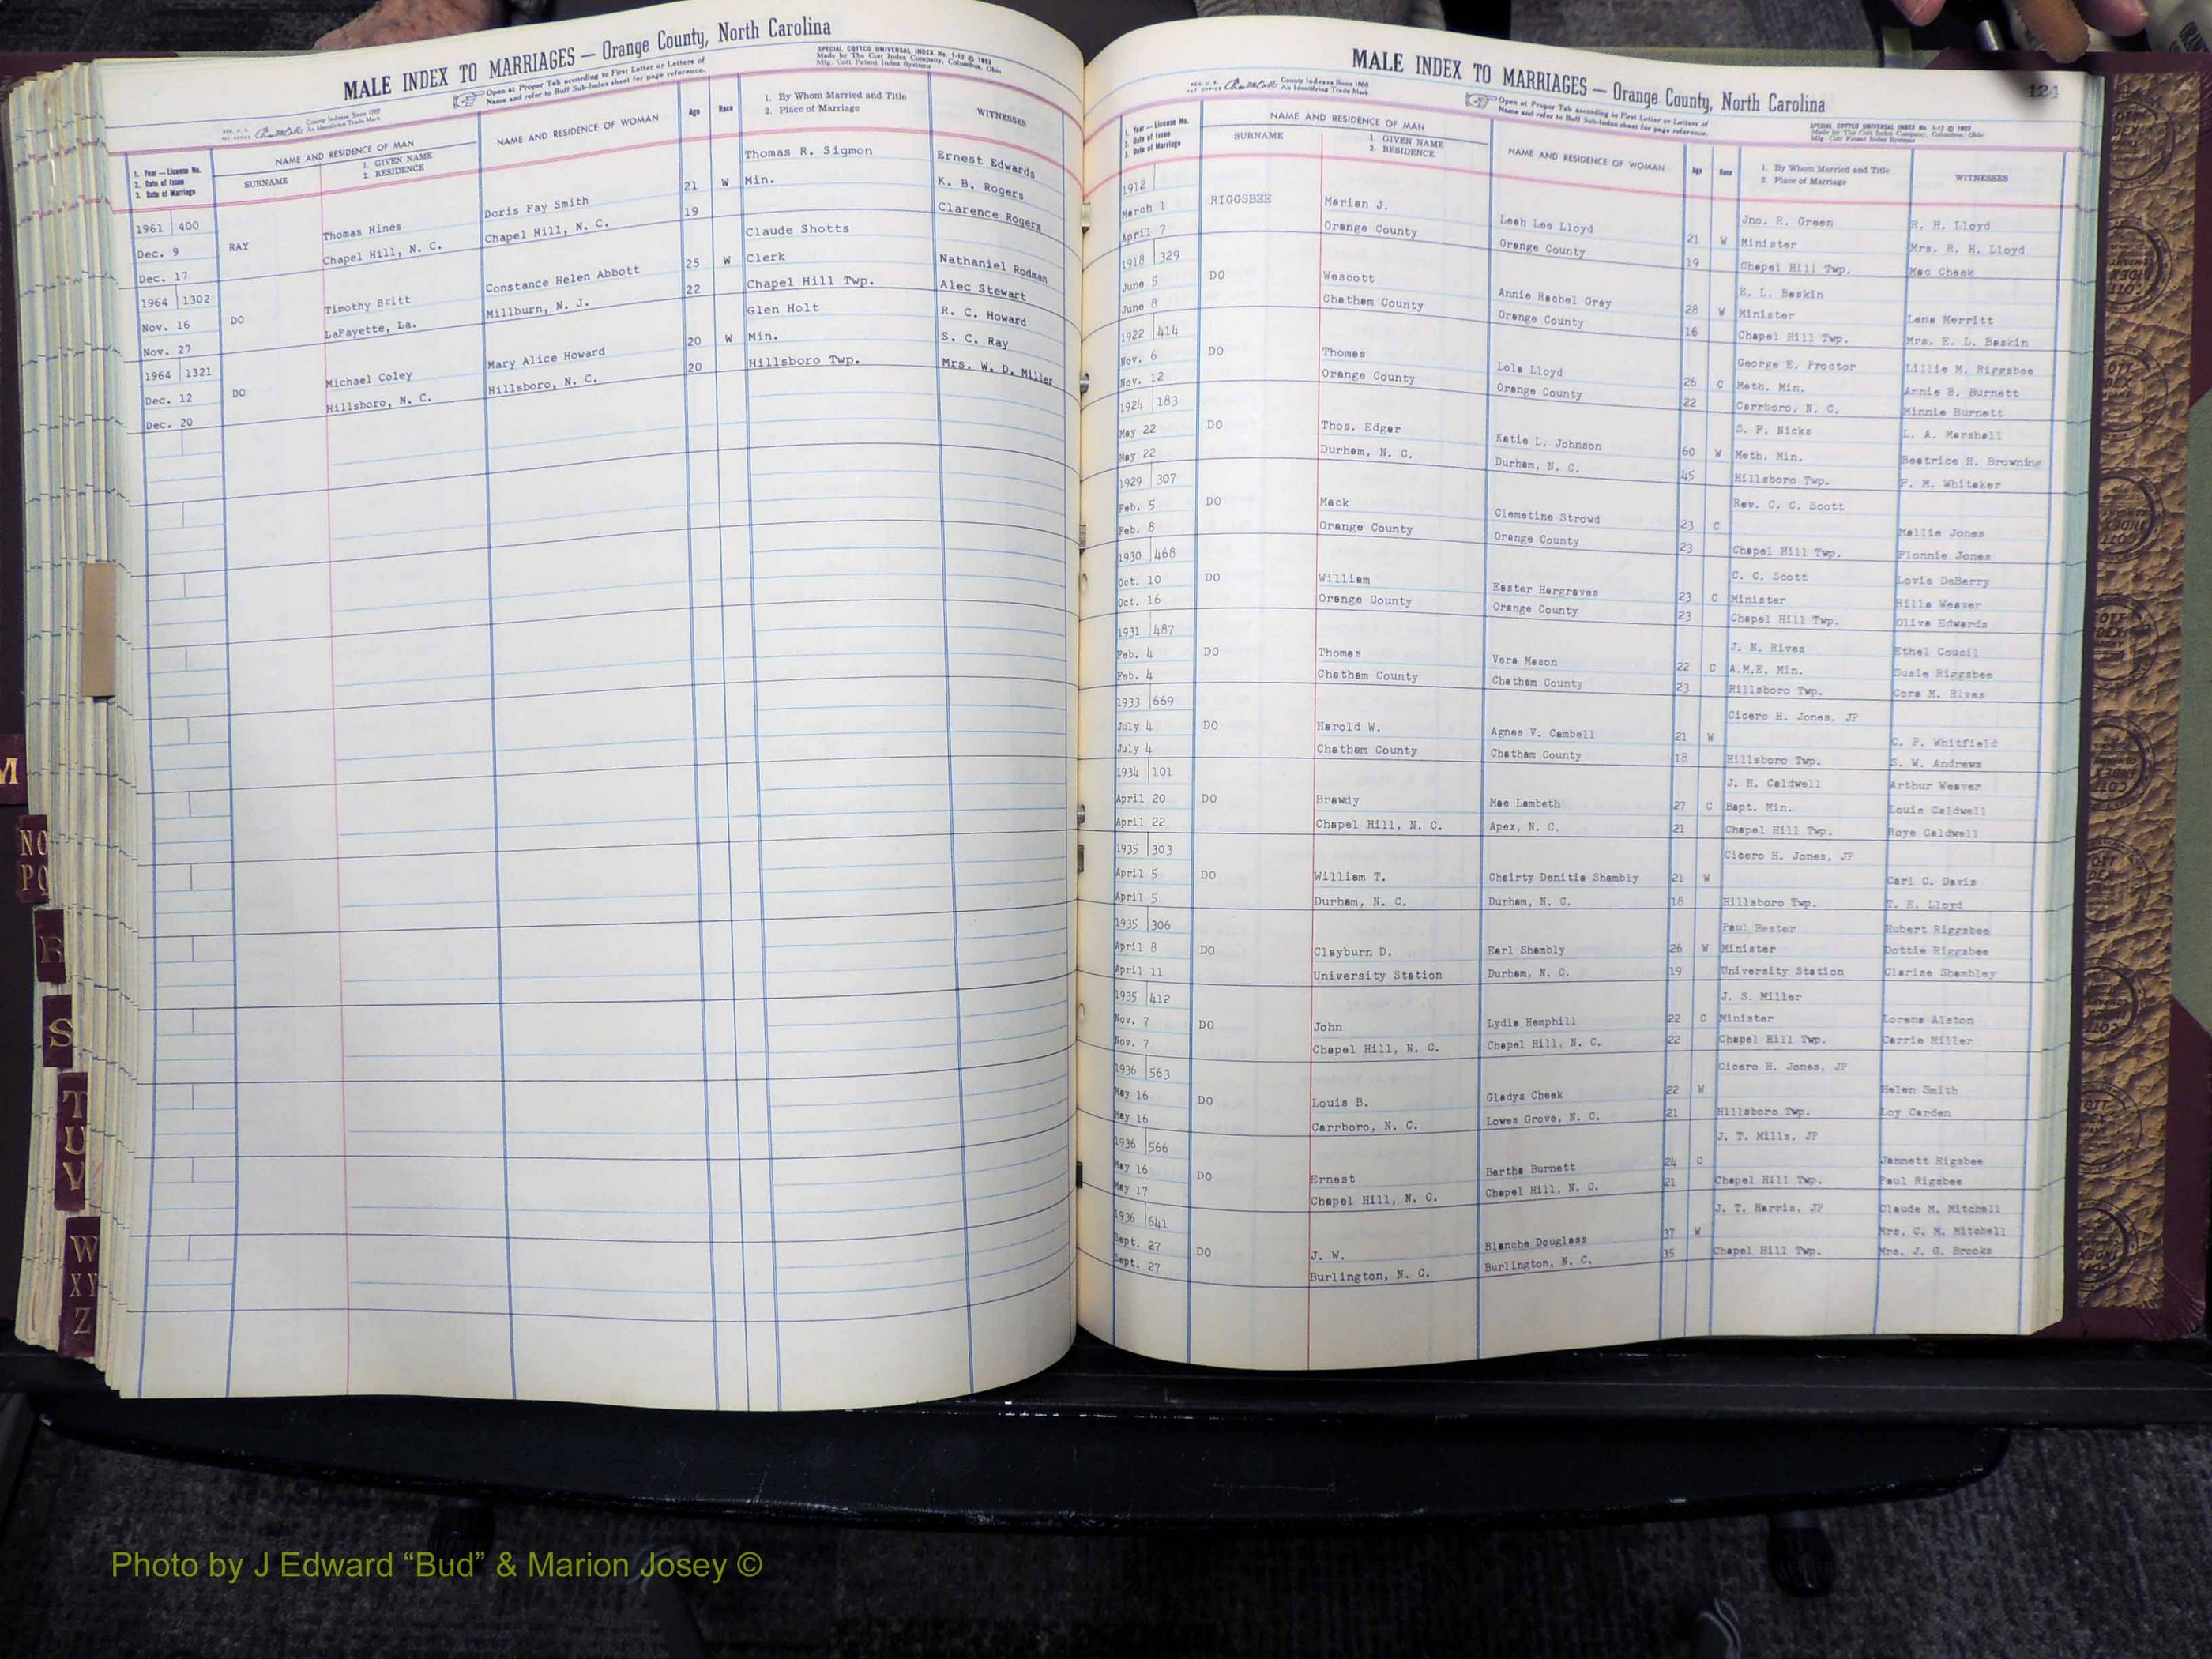 MALE INDEX TO MARRIAGES — Orange County, North Carolina
Open at Proper Tab according to First Letter or Letters of
Name and refer to Buff Sub-Index sheet for page reference.
SPECIAL COTTCO UNIVERSAL INDEX No. 1-12 © 1952
Made by The Cott Index Company, Columbus, Ohio
Mfg. Cott Patent Index Systems
County Indexes Since 1888
An Identifying Trade Mark
1. Year — License No.
2. Date of Issue
3. Date of Marriage
NAME AND RESIDENCE OF MAN
SURNAME
1. GIVEN NAME
2. RESIDENCE
NAME AND RESIDENCE OF WOMAN
Age
Race
1. By Whom Married and Title
2. Place of Marriage
WITNESSES
1961 400 Thomas R. Sigmon Ernest Edwards
Dec. 9 RAY Thomas Hines Doris Fay Smith 21 W Min. K. B. Rogers
Dec. 17 Chapel Hill, N. C. Chapel Hill, N. C. 19 Clarence Rogers
1964 1302 Claude Shotts
Nov. 16 DO Timothy Britt Constance Helen Abbott 25 W Clerk Nathaniel Rodman
Nov. 27 LaFayette, La. Millburn, N. J. 22 Chapel Hill Twp. Alec Stewart
1964 1321 Glen Holt R. C. Howard
Dec. 12 DO Michael Coley Mary Alice Howard 20 W Min. S. C. Ray
Dec. 20 Hillsboro, N. C. Hillsboro, N. C. 20 Hillsboro Twp. Mrs. W. D. Miller
MALE INDEX TO MARRIAGES — Orange County, North Carolina
124
County Indexes Since 1888
An Identifying Trade Mark
Open at Proper Tab according to First Letter or Letters of
Name and refer to Buff Sub-Index sheet for page reference.
SPECIAL COTTCO UNIVERSAL INDEX No. 1-12 © 1952
Made by The Cott Index Company, Columbus, Ohio
Mfg. Cott Patent Index Systems
1. Year — License No.
2. Date of Issue
3. Date of Marriage
NAME AND RESIDENCE OF MAN
SURNAME
1. GIVEN NAME
2. RESIDENCE
NAME AND RESIDENCE OF WOMAN
Age
Race
1. By Whom Married and Title
2. Place of Marriage
WITNESSES
1912 Jno. R. Green R. H. Lloyd
March 1 RIGGSBEE Marian J. Leah Lee Lloyd 21 W Minister Mrs. R. H. Lloyd
April 7 Orange County Orange County 19 Chapel Hill Twp. Mac Cheek
1918 329 E. L. Baskin
June 5 DO Wescott Annie Rachel Gray 28 W Minister Lena Merritt
June 8 Chatham County Orange County 16 Chapel Hill Twp. Mrs. E. L. Baskin
1922 414 George E. Proctor Lillie M. Riggsbee
Nov. 6 DO Thomas Lola Lloyd 26 C Meth. Min. Annie B. Burnett
Nov. 12 Orange County Orange County 22 Carrboro, N. C. Minnie Burnett
1924 183 S. F. Nicks L. A. Marshall
May 22 DO Thos. Edgar Katie L. Johnson 60 W Meth. Min. Beatrice H. Browning
May 22 Durham, N. C. Durham, N. C. 45 Hillsboro Twp. F. M. Whitaker
1929 307 Rev. C. C. Scott
Feb. 5 DO Mack Clemetine Strowd 23 C Mallie Jones
Feb. 8 Orange County Orange County 23 Chapel Hill Twp. Flonnie Jones
1930 468 C. C. Scott Lovie DeBerry
Oct. 10 DO William Easter Hargraves 23 C Minister Rilla Weaver
Oct. 16 Orange County Orange County 23 Chapel Hill Twp. Olive Edwards
1931 487 J. N. Rives Ethel Coucil
Feb. 4 DO Thomas Vera Mason 22 C A.M.E. Min. Susie Riggsbee
Feb. 4 Chatham County Chatham County 23 Hillsboro Twp. Cora M. Rives
1933 669 Cicero H. Jones, JP
July 4 DO Harold W. Agnes V. Cambell 21 W C. P. Whitfield
July 4 Chatham County Chatham County 18 Hillsboro Twp. S. W. Andrews
1934 101 J. H. Caldwell Arthur Weaver
April 20 DO Brawdy Mae Lambeth 27 C Bapt. Min. Louie Caldwell
April 22 Chapel Hill, N. C. Apex, N. C. 21 Chapel Hill Twp. Roye Caldwell
1935 303 Cicero H. Jones, JP
April 5 DO William T. Chairty Denitia Shambly 21 W Carl C. Davis
April 5 Durham, N. C. Durham, N. C. 18 Hillsboro Twp. T. E. Lloyd
1935 306 Paul Hester Hubert Riggsbee
April 8 DO Clayburn D. Earl Shambly 26 W Minister Dottie Riggsbee
April 11 University Station Durham, N. C. 19 University Station Clarise Shambley
1935 412 J. S. Miller
Nov. 7 DO John Lydia Hemphill 22 C Minister Lorena Alston
Nov. 7 Chapel Hill, N. C. Chapel Hill, N. C. 22 Chapel Hill Twp. Carrie Miller
1936 563 Cicero H. Jones, JP
May 16 DO Louis B. Gladys Cheek 22 W Helen Smith
May 16 Carrboro, N. C. Lowes Grove, N. C. 21 Hillsboro Twp. Loy Carden
1936 566 J. T. Mills, JP
May 16 DO Ernest Bertha Burnett 24 C Jannett Rigsbee
May 17 Chapel Hill, N. C. Chapel Hill, N. C. 21 Chapel Hill Twp. Paul Rigsbee
1936 641 J. T. Harris, JP Claude M. Mitchell
Sept. 27 DO J. W. Blanche Douglass 37 W Mrs. C. M. Mitchell
Sept. 27 Burlington, N. C. Burlington, N. C. 35 Chapel Hill Twp. Mrs. J. G. Brooks
M
NO
PQ
R
S
T
U
V
W
XY
Z
Photo by J Edward “Bud” & Marion Josey ©